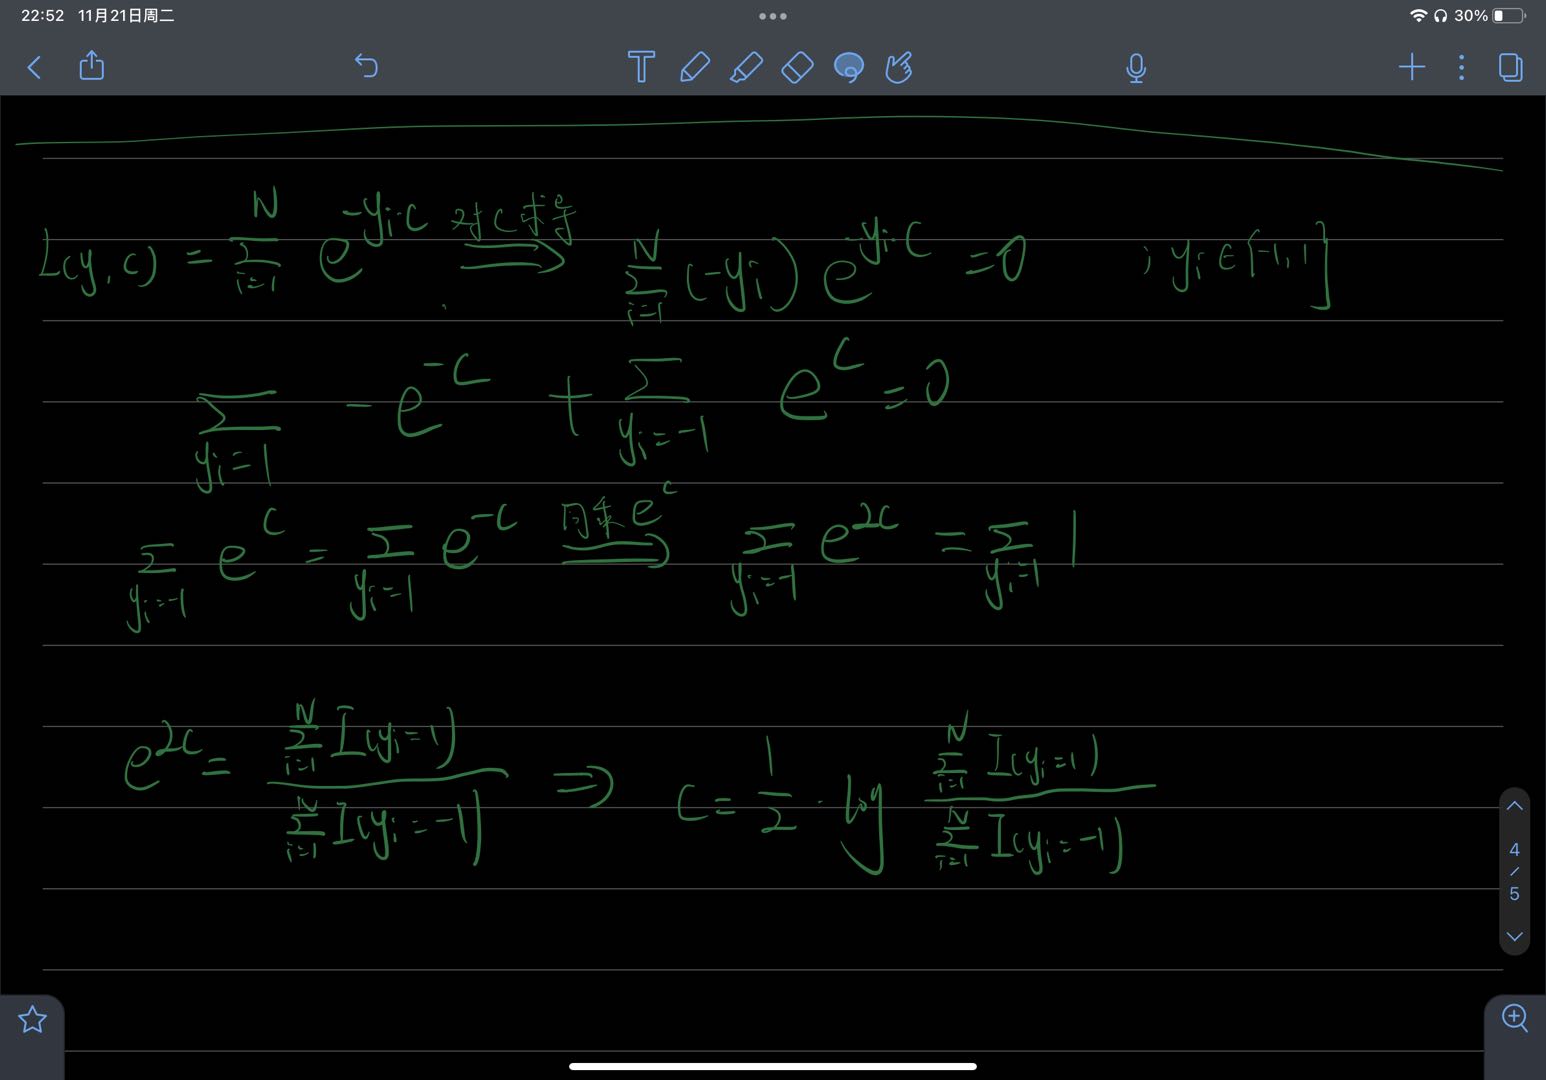 22:52 11月21日周二 30%
T
L(y,c) = \sum_{i=1}^{N} e^{-y_i \cdot c} 对C求导 ⟹ \sum_{i=1}^{N} (-y_i) e^{-y_i \cdot c} = 0 ; y_i ∈ [-1,1]
\sum_{y_i=1} -e^{-c} + \sum_{y_i=-1} e^{c} = 0
\sum_{y_i=-1} e^{c} = \sum_{y_i=1} e^{-c} 同乘e^c ⟹ \sum_{y_i=-1} e^{2c} = \sum_{y_i=1} 1
e^{2c} = \frac{\sum_{i=1}^{N} I(y_i=1)}{\sum_{i=1}^{N} I(y_i=-1)} ⟹ c = \frac{1}{2} \cdot log \frac{\sum_{i=1}^{N} I(y_i=1)}{\sum_{i=1}^{N} I(y_i=-1)}
4
/
5